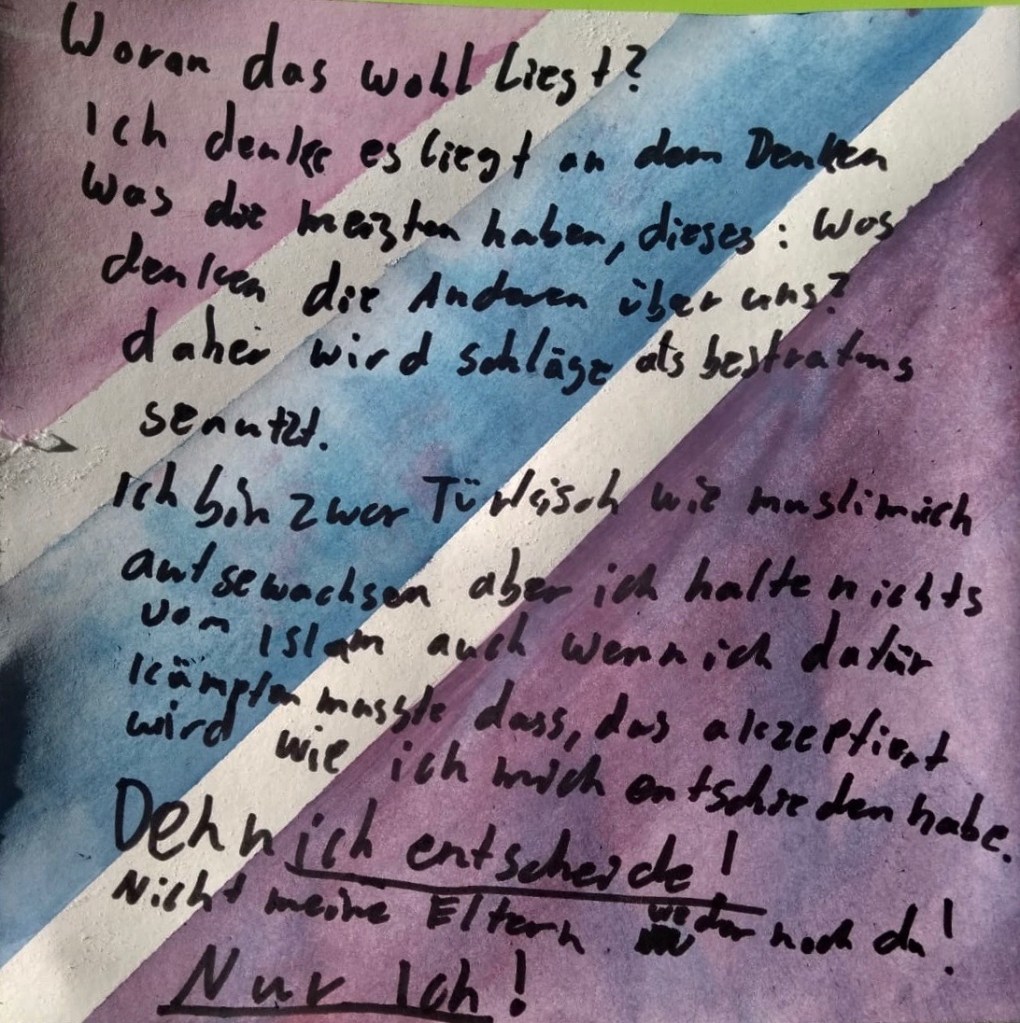 Woran das wohl liegt?
Ich denke es liegt an dem Denken
Was die meizten haben, dieses: Was
denken die Anderen über uns?
daher wird schläge als bestrafung
genutzt.
Ich bin zwar Türkisch wie muslimich
aufgewachsen aber ich halte nichts
vom Islam auch wenn ich dafür
kämpfen musste dass, das akzeptiert
wird wie ich mich entschieden habe.
Denn ich entscheide!
Nicht meine Eltern weder noch du!
Nur Ich!